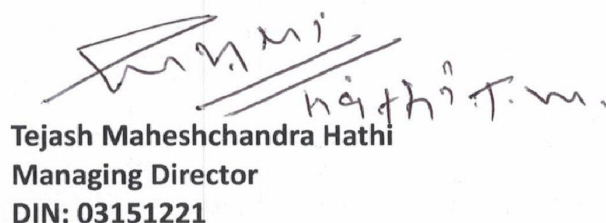 hathi T. m.
Tejash Maheshchandra Hathi
Managing Director
DIN: 03151221